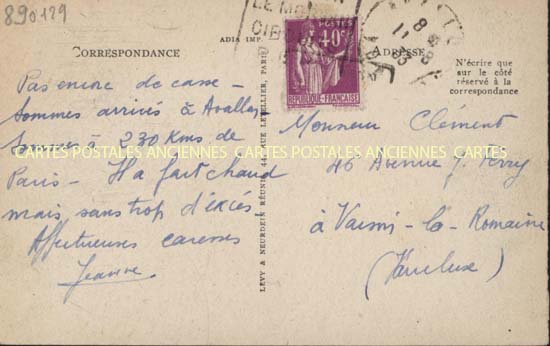 890129
LE MON
CIE
ADIA IMP.
POSTES
40c
RÉPUBLIQUE-FRANÇAISE
CORRESPONDANCE
ADRESSE
N'écrire que
sur le côté
réservé à la
correspondance
Pas encore de casse -
Sommes arrivés à Avallon
Sommes à 230 Kms de
Paris - Il a fait chaud
mais, sans trop d'excès.
Affectueuses caresses
Jeanne.
LÉVY & NEURDEIN RÉUNIS, 44, RUE LETELLIER, PARIS
Monsieur Clément
46 Avenue J. Ferry
à Vaison-la-Romaine
(Vaucluse)
CARTES POSTALES ANCIENNES CARTES POSTALES ANCIENNES CARTES